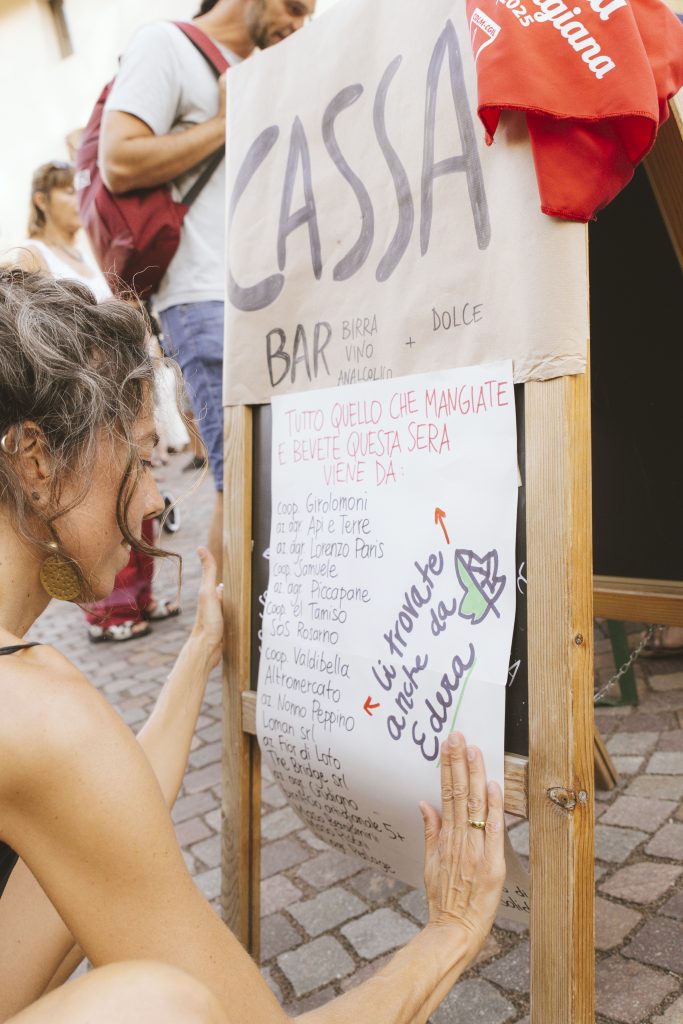 CASSA
2025
giana
BAR
BIRRA
VINO
ANALCOLICO
+
DOLCE
TUTTO QUELLO CHE MANGIATE
E BEVETE QUESTA SERA
VIENE DA:
coop. Girolomoni
az. agr. Api e Terre
az. agr. Lorenzo Paris
coop. Samuele
az. agr. Piccapane
coop. el Tamiso
SOS Rosarno
coop. Valdibella
Altromercato
az. Nonno Peppino
Loman srl
az. Fior di Loto
The Bridge srl
az. agr.
artigianale 5+
Li trovate
anche da
Edera